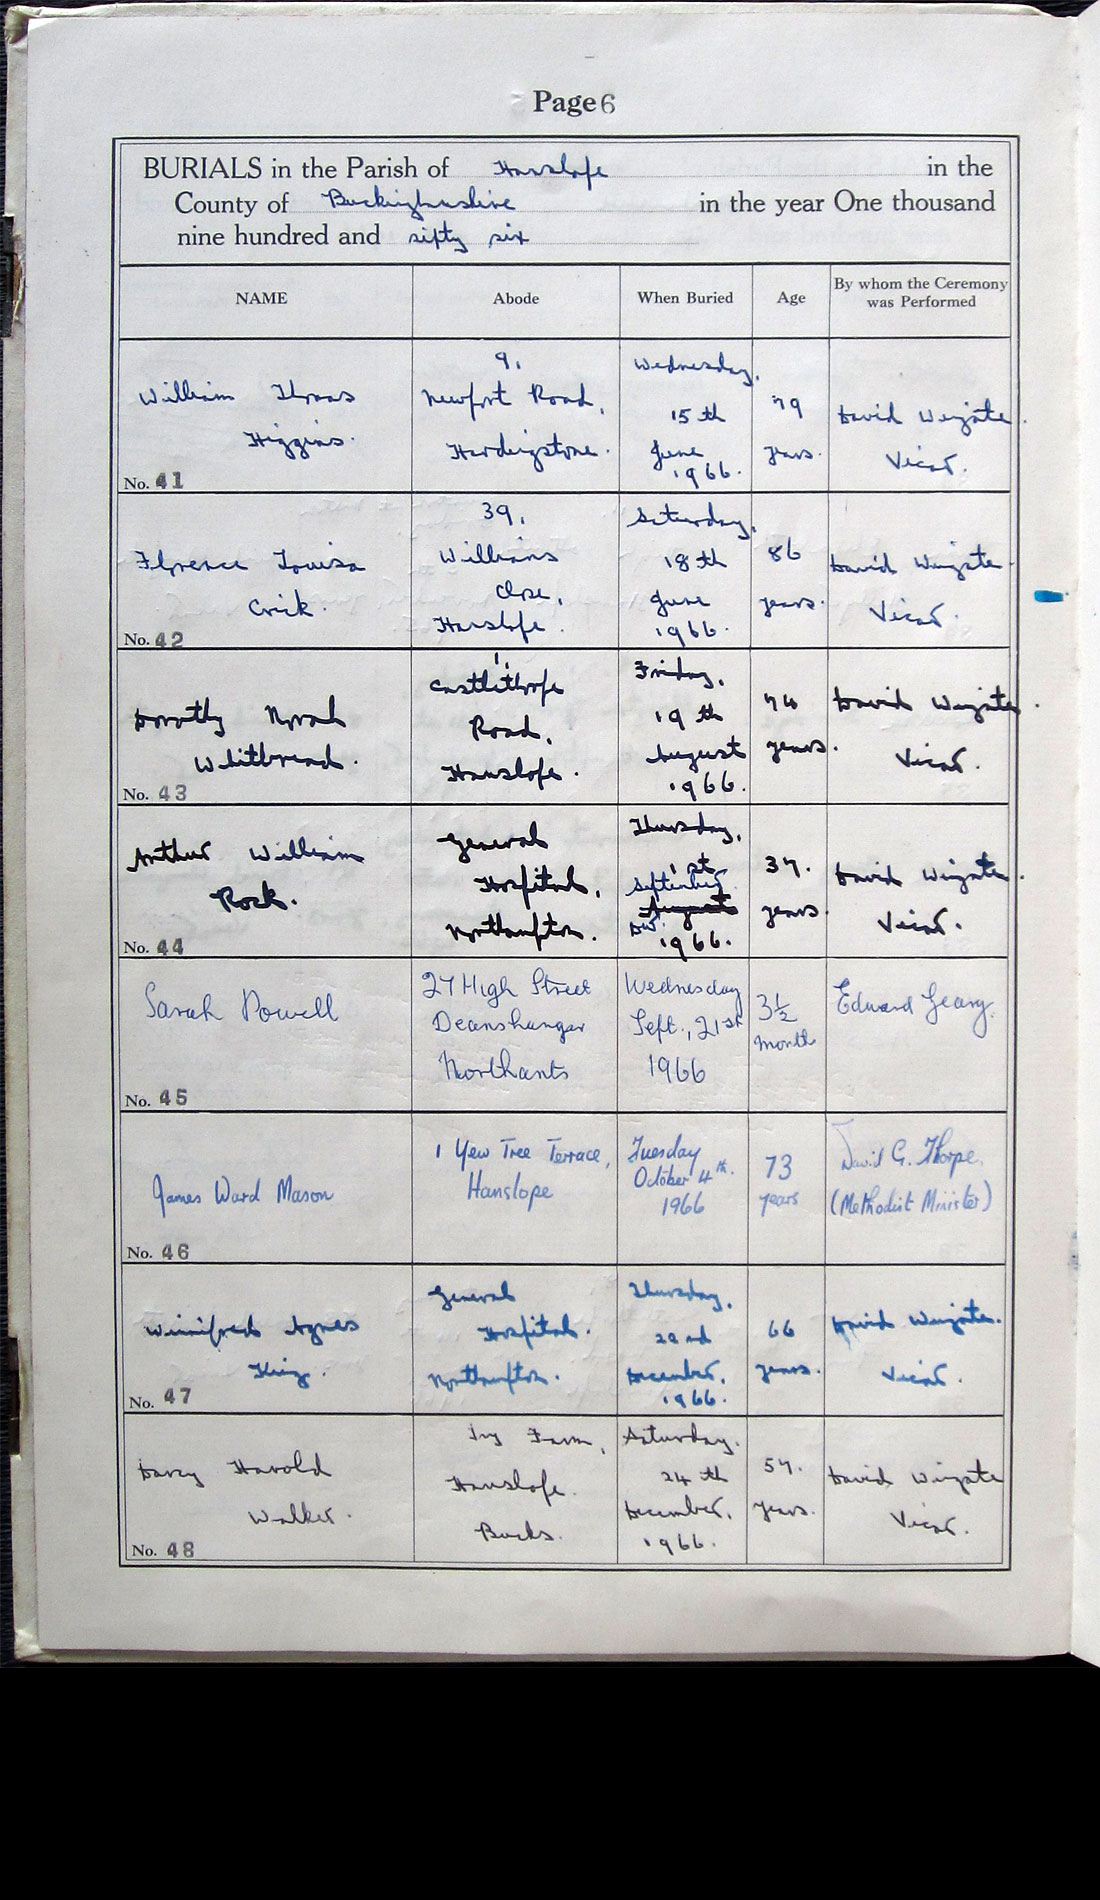 Page 6
BURIALS in the Parish of Hanslope in the
County of Buckinghamshire in the year One thousand
nine hundred and sixty six
NAME Abode When Buried Age By whom the Ceremony was Performed
William Thomas Higgins.
9, Newport Road, Hardingstone.
Wednesday, 15th June 1966.
79 years.
David Wingate. Vicar.
No. 41
Florence Louisa Crick.
39, Williams Close, Hanslope.
Saturday, 18th June 1966.
86 years.
David Wingate. Vicar.
No. 42
Dorothy Norah Whitbread.
1, Castlethorpe Road, Hanslope.
Friday, 19th August 1966.
74 years.
David Wingate. Vicar.
No. 43
Arthur William Rock.
General Hospital, Northampton.
Thursday, 1st September August DW. 1966.
37. years.
David Wingate. Vicar.
No. 44
Sarah Powell
27 High Street Deanshanger Northants
Wednesday Sept., 21st 1966
3½ months
Edward Geary.
No. 45
James Ward Mason
1 Yew Tree Terrace, Hanslope
Tuesday October 4th. 1966
73 years
David G. Thorpe. (Methodist Minister)
No. 46
Winnifred Agnes King.
General Hospital. Northampton.
Thursday, 22nd December, 1966.
66 years.
David Wingate. Vicar.
No. 47
Darcy Harold Walker.
Ivy Farm, Hanslope. Bucks.
Saturday. 24th December, 1966.
57. years.
David Wingate Vicar.
No. 48